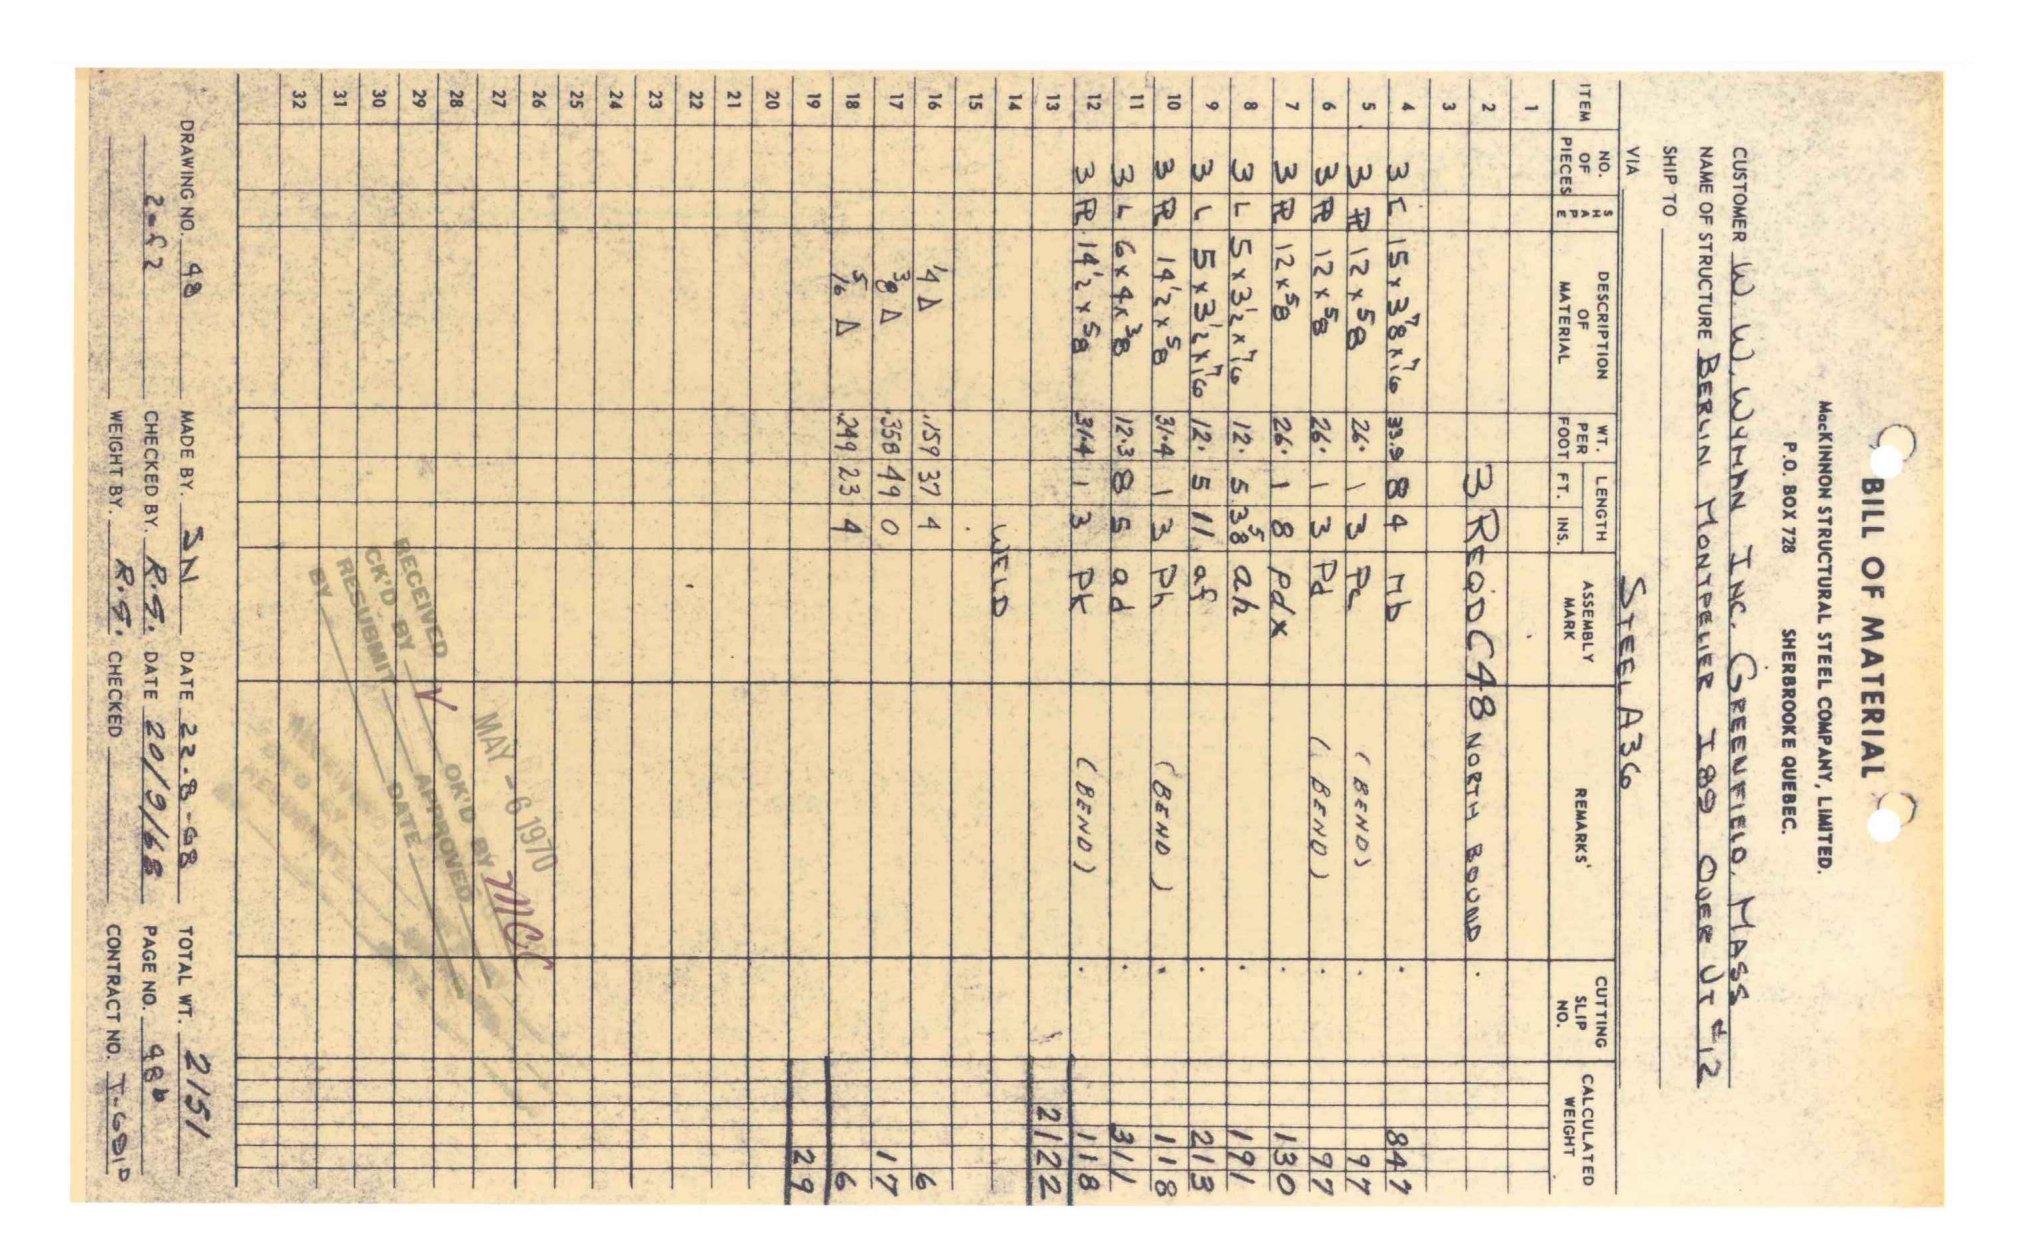 BILL OF MATERIAL
McKINNON STRUCTURAL STEEL COMPANY, LIMITED.
P.O. BOX 728 SHERBROOKE QUEBEC.
CUSTOMER W. W. WYMAN INC. GREENFIELD, MASS
NAME OF STRUCTURE BERLIN MONTPELIER I 89 OVER VT #12
SHIP TO
VIA STEEL A36
ITEM NO. OF PIECES SHAPE DESCRIPTION OF MATERIAL WT. PER FOOT LENGTH FT. INS. ASSEMBLY MARK REMARKS CUTTING SLIP NO. CALCULATED WEIGHT
1
2 3 REQD C48 NORTH BOUND
3
4 3 [ 15 x 3 3/8 x 7/16 33.9 8 4 Mb 847
5 3 PL 12 x 5/8 26. 1 3 Pc (BEND) 97
6 3 PL 12 x 5/8 26. 1 3 Pd (BEND) 97
7 3 PL 12 x 5/8 26. 1 8 Pdx 130
8 3 L 5 x 3 1/2 x 7/16 12. 5 3 5/8 ah 191
9 3 L 5 x 3 1/2 x 7/16 12. 5 11 af 213
10 3 PL 14 1/2 x 5/8 31.4 1 3 Ph (BEND) 118
11 3 L 6 x 4 x 3/8 12.3 8 5 ad 311
12 3 PL 14 1/2 x 5/8 31.4 1 3 Pk (BEND) 118
13 2122
14 WELD
15
16 1/4 Δ .159 37 4 6
17 3/8 Δ .358 49 0 17
18 5/16 Δ .249 23 4 6
19 29
20
21
22
23
24
25
26
27
28
29
30
31
32
MAY - 6 1970
RECEIVED
CK'D BY OK'D BY MCC
RESUBMIT APPROVED
BY DATE
DRAWING NO. 48 MADE BY. JN DATE 22-8-68 TOTAL WT. 2151
CHECKED BY. R.G. DATE 20/9/68 PAGE NO. 48b
WEIGHT BY. R.G. CHECKED CONTRACT NO. T-681D